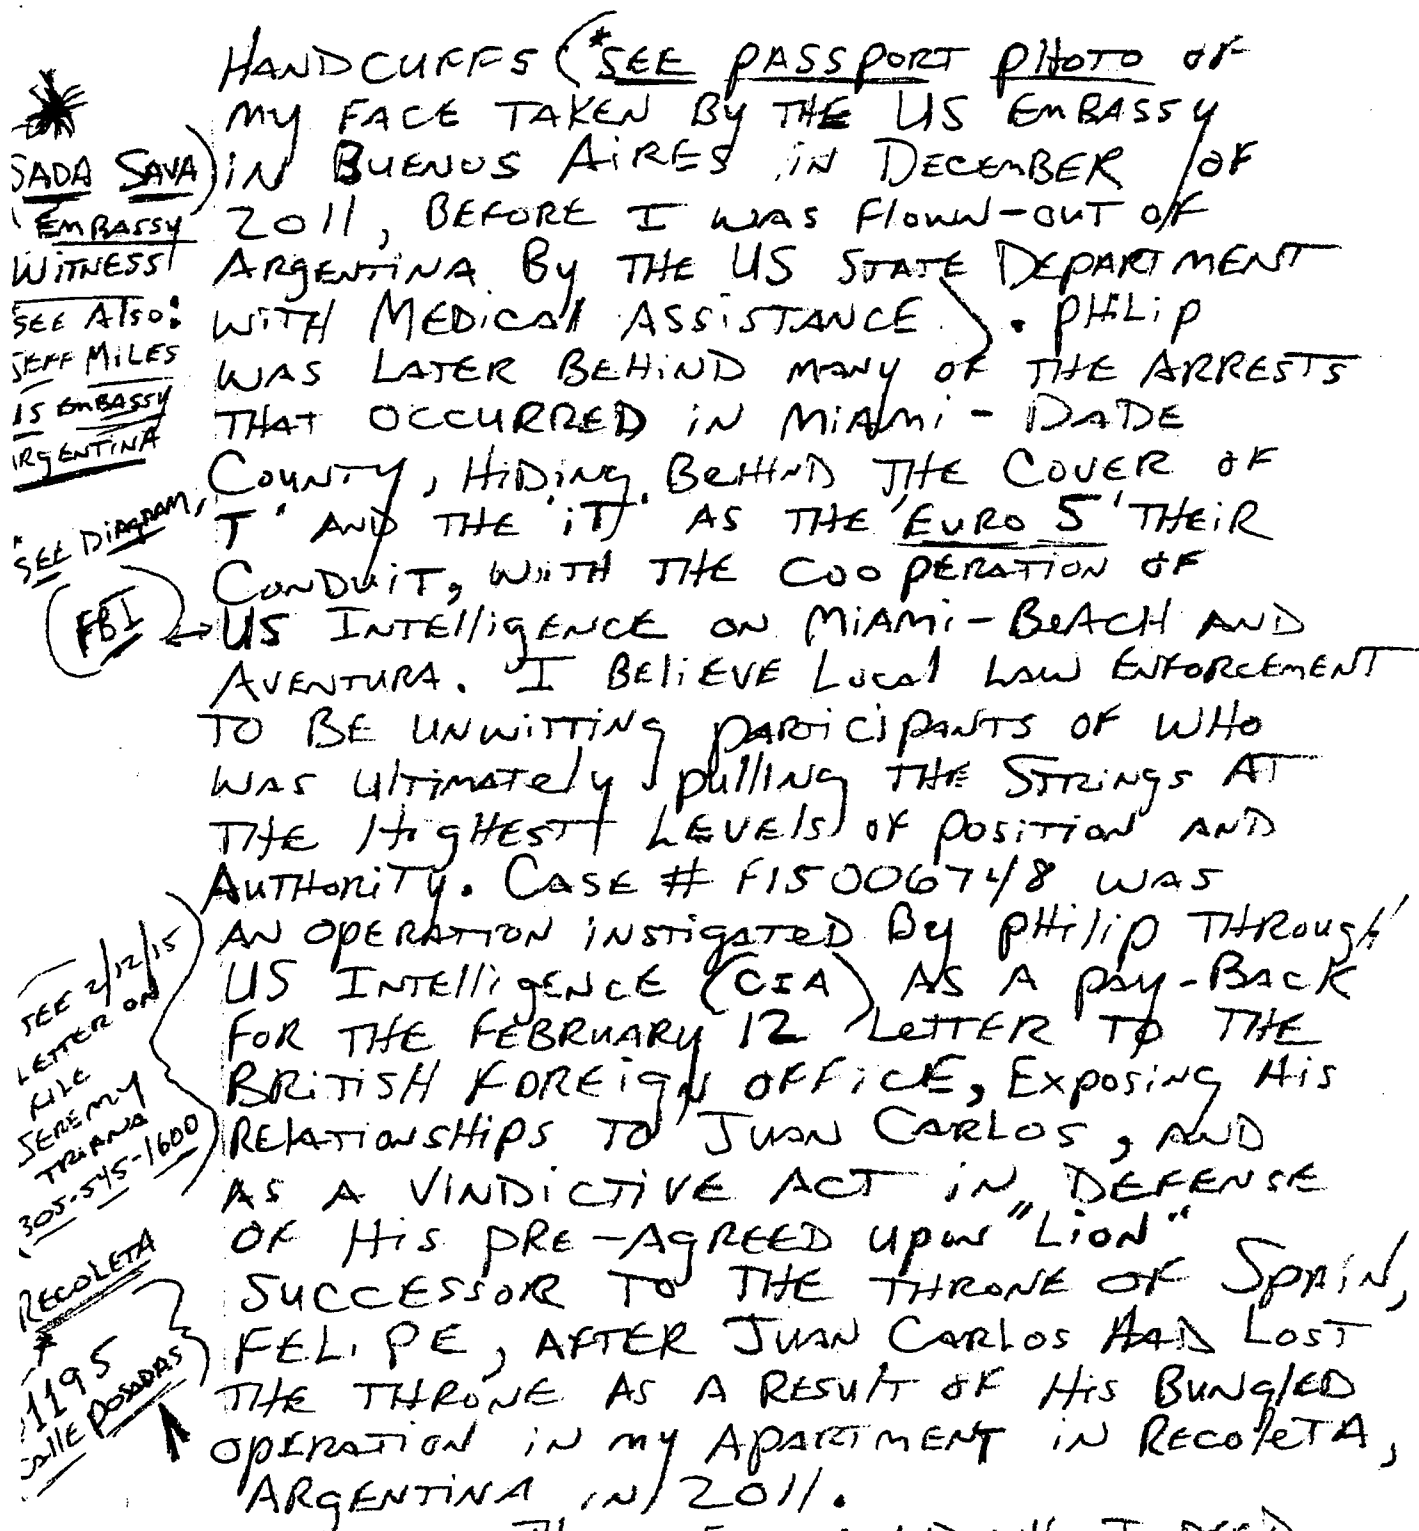 HANDCUFFS (*SEE PASSPORT PHOTO OF
MY FACE TAKEN BY THE US EMBASSY
IN BUENOS AIRES IN DECEMBER OF
2011, BEFORE I WAS FLOWN-OUT OF
ARGENTINA BY THE US STATE DEPARTMENT
WITH MEDICAL ASSISTANCE). PHILIP
WAS LATER BEHIND MANY OF THE ARRESTS
THAT OCCURRED IN MIAMI-DADE
COUNTY, HIDING BEHIND THE COVER OF
'T' AND THE 'IT' AS THE 'EURO 5' THEIR
CONDUIT, WITH THE COOPERATION OF
US INTELLIGENCE ON MIAMI-BEACH AND
AVENTURA. I BELIEVE LOCAL LAW ENFORCEMENT
TO BE UNWITTING PARTICIPANTS OF WHO
WAS ULTIMATELY PULLING THE STRINGS AT
THE HIGHEST LEVELS OF POSITION AND
AUTHORITY. CASE # F15006748 WAS
AN OPERATION INSTIGATED BY PHILIP THROUGH
US INTELLIGENCE (CIA) AS A PAY-BACK
FOR THE FEBRUARY 12 LETTER TO THE
BRITISH FOREIGN OFFICE, EXPOSING HIS
RELATIONSHIPS TO JUAN CARLOS, AND
AS A VINDICTIVE ACT IN DEFENSE
OF HIS PRE-AGREED UPON "LION"
SUCCESSOR TO THE THRONE OF SPAIN,
FELIPE, AFTER JUAN CARLOS HAD LOST
THE THRONE AS A RESULT OF HIS BUNGLED
OPERATION IN MY APARTMENT IN RECOLETA,
ARGENTINA IN 2011.
SADA SAVA)
(EMBASSY
WITNESS
SEE ALSO:
JEFF MILES
US EMBASSY
ARGENTINA
*SEE DIAGRAM,
(FBI)
SEE 2/12/15
LETTER ON
FILE
JEREMY
TRIANA
305-545-1600
RECOLETA
*
1195
CALLE POSADAS